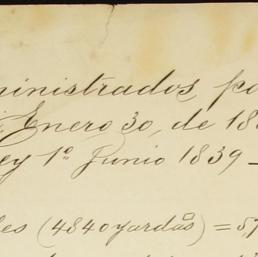 ministrados, po
Enero 30, de 18
ey 1º Junio 1839 -
es (4840 yardas) = 57